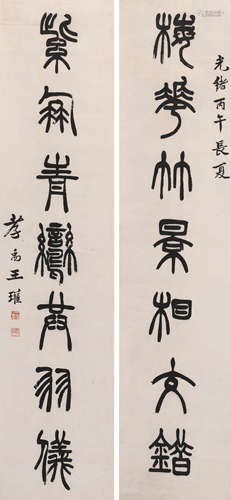 光緒丙午長夏
梅華竹景相交錯
紫鳳青鸞共羽儀
孝禹王瓘